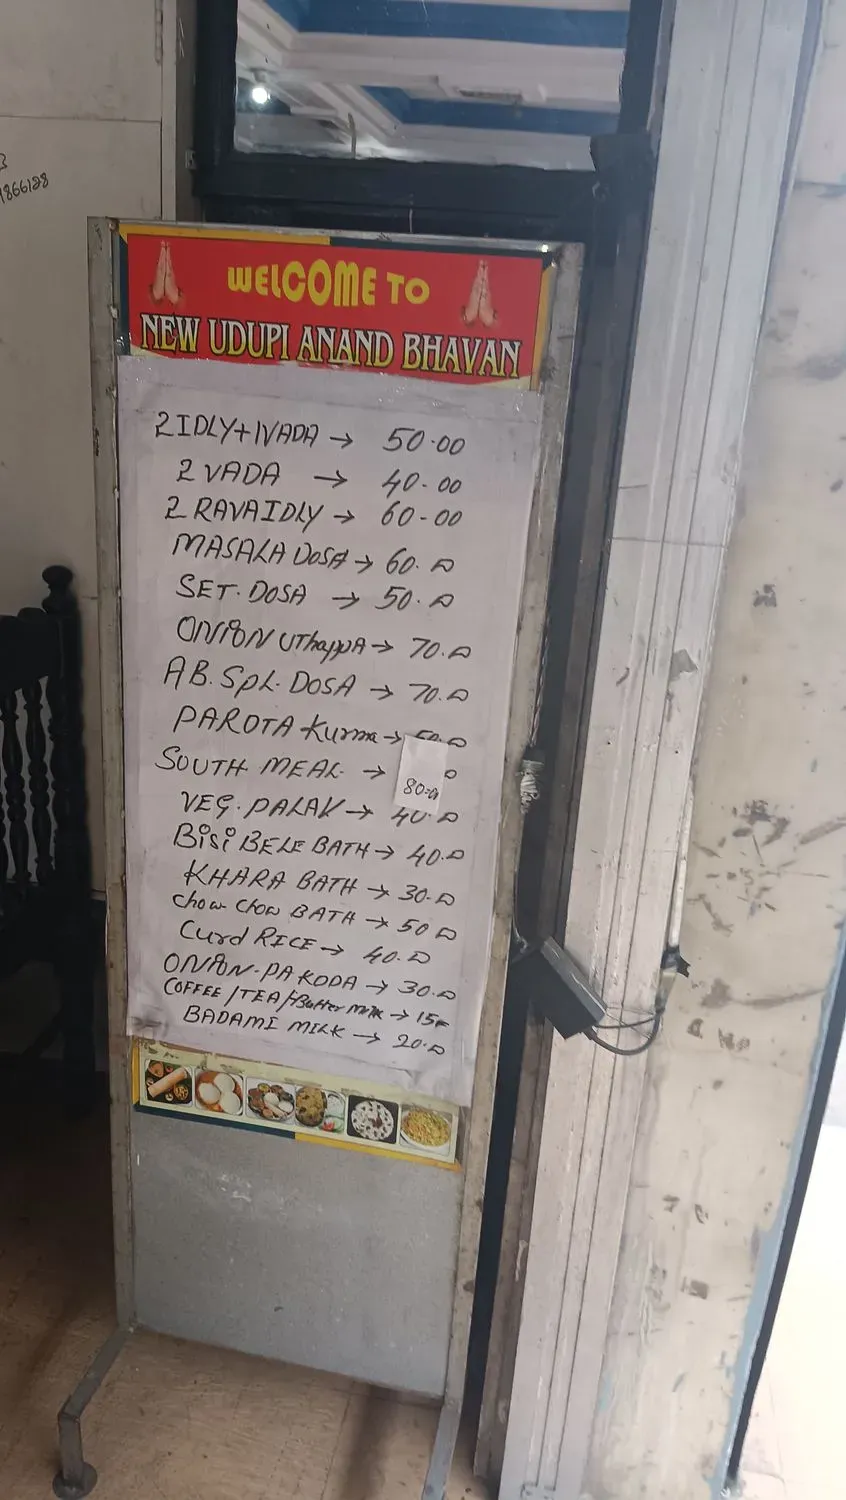 3
9866128
WELCOME TO
NEW UDUPI ANAND BHAVAN
2 IDLY+1VADA → 50.00
2 VADA → 40.00
2 RAVAIDLY → 60-00
MASALA DOSA → 60.00
SET. DOSA → 50.00
ONION UThappA → 70.00
AB. SPL. DOSA → 70.00
PAROTA Kurma → 50.00
SOUTH MEAL → 80=00
VEG. PALAV → 40.00
BiSi BELE BATH → 40.00
KHARA BATH → 30.00
Chow Chow BATH → 50 00
Curd RICE → 40.00
ONION-PAKODA → 30.00
COFFEE/TEA/Butter Milk → 15
BADAMI MILK → 20.00